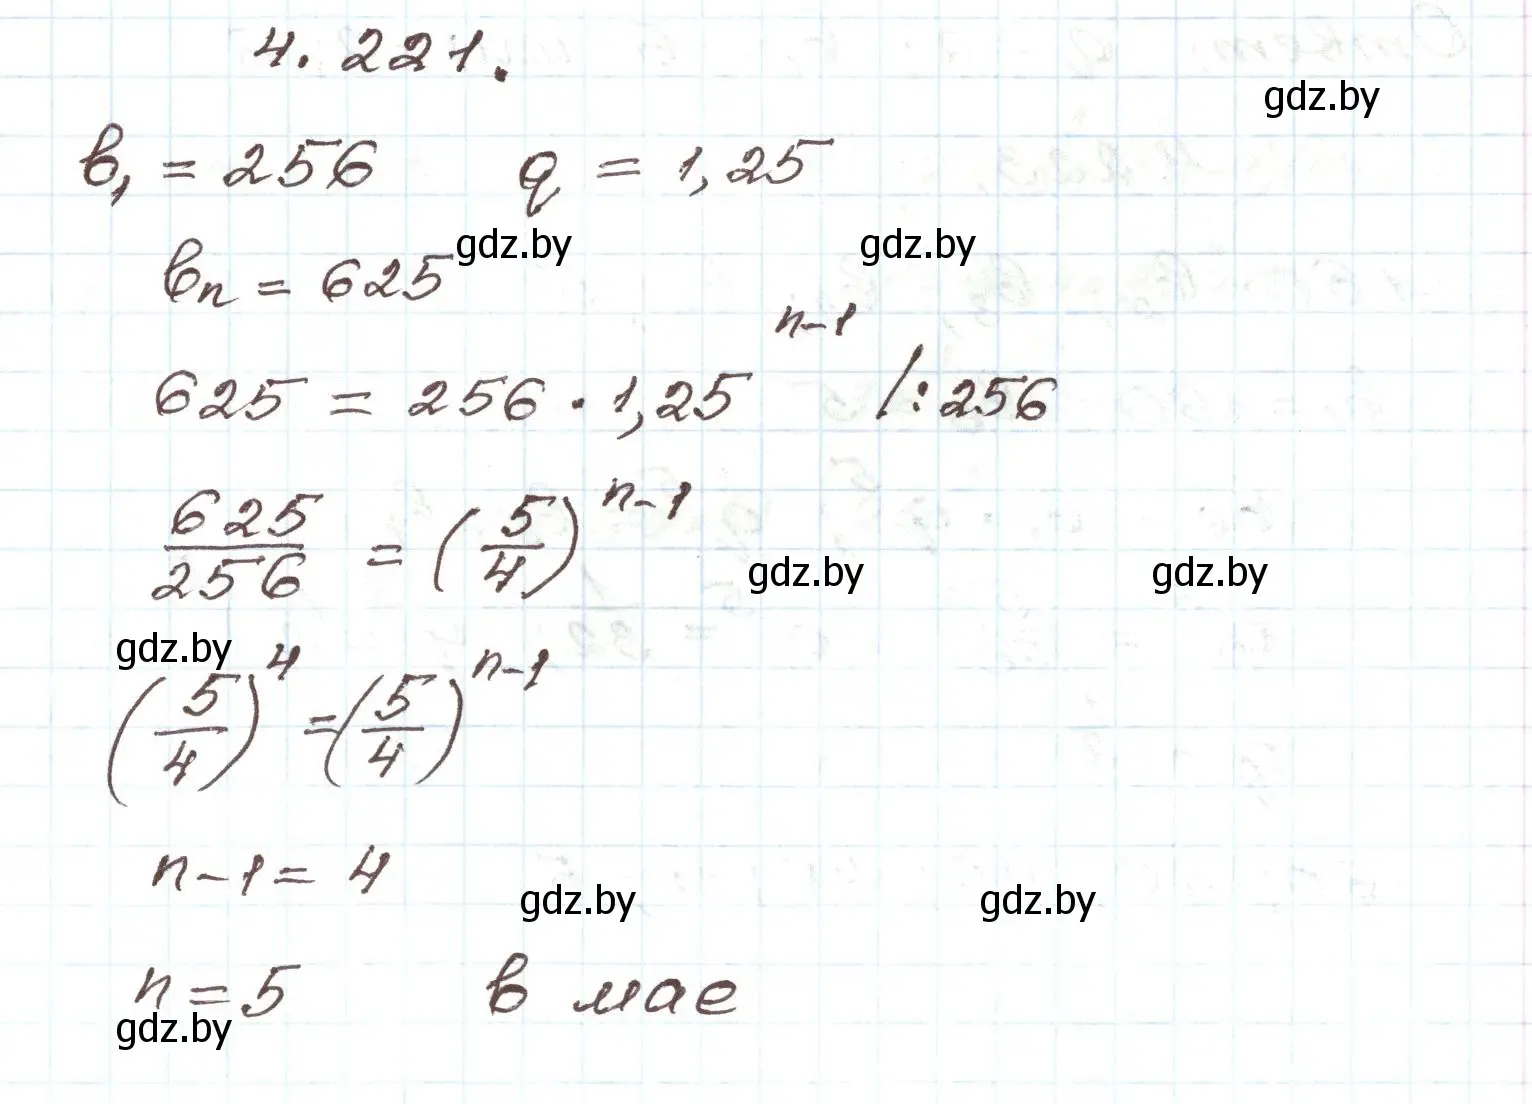 4.221.
gdz.by
b₁ = 256 q = 1,25
gdz.by gdz.by
bₙ = 625
625 = 256 · 1,25ⁿ⁻¹ /: 256
625/256 = (5/4)ⁿ⁻¹
gdz.by gdz.by
gdz.by
(5/4)⁴ = (5/4)ⁿ⁻¹
n-1 = 4
gdz.by gdz.by
n = 5 в мае
gdz.by